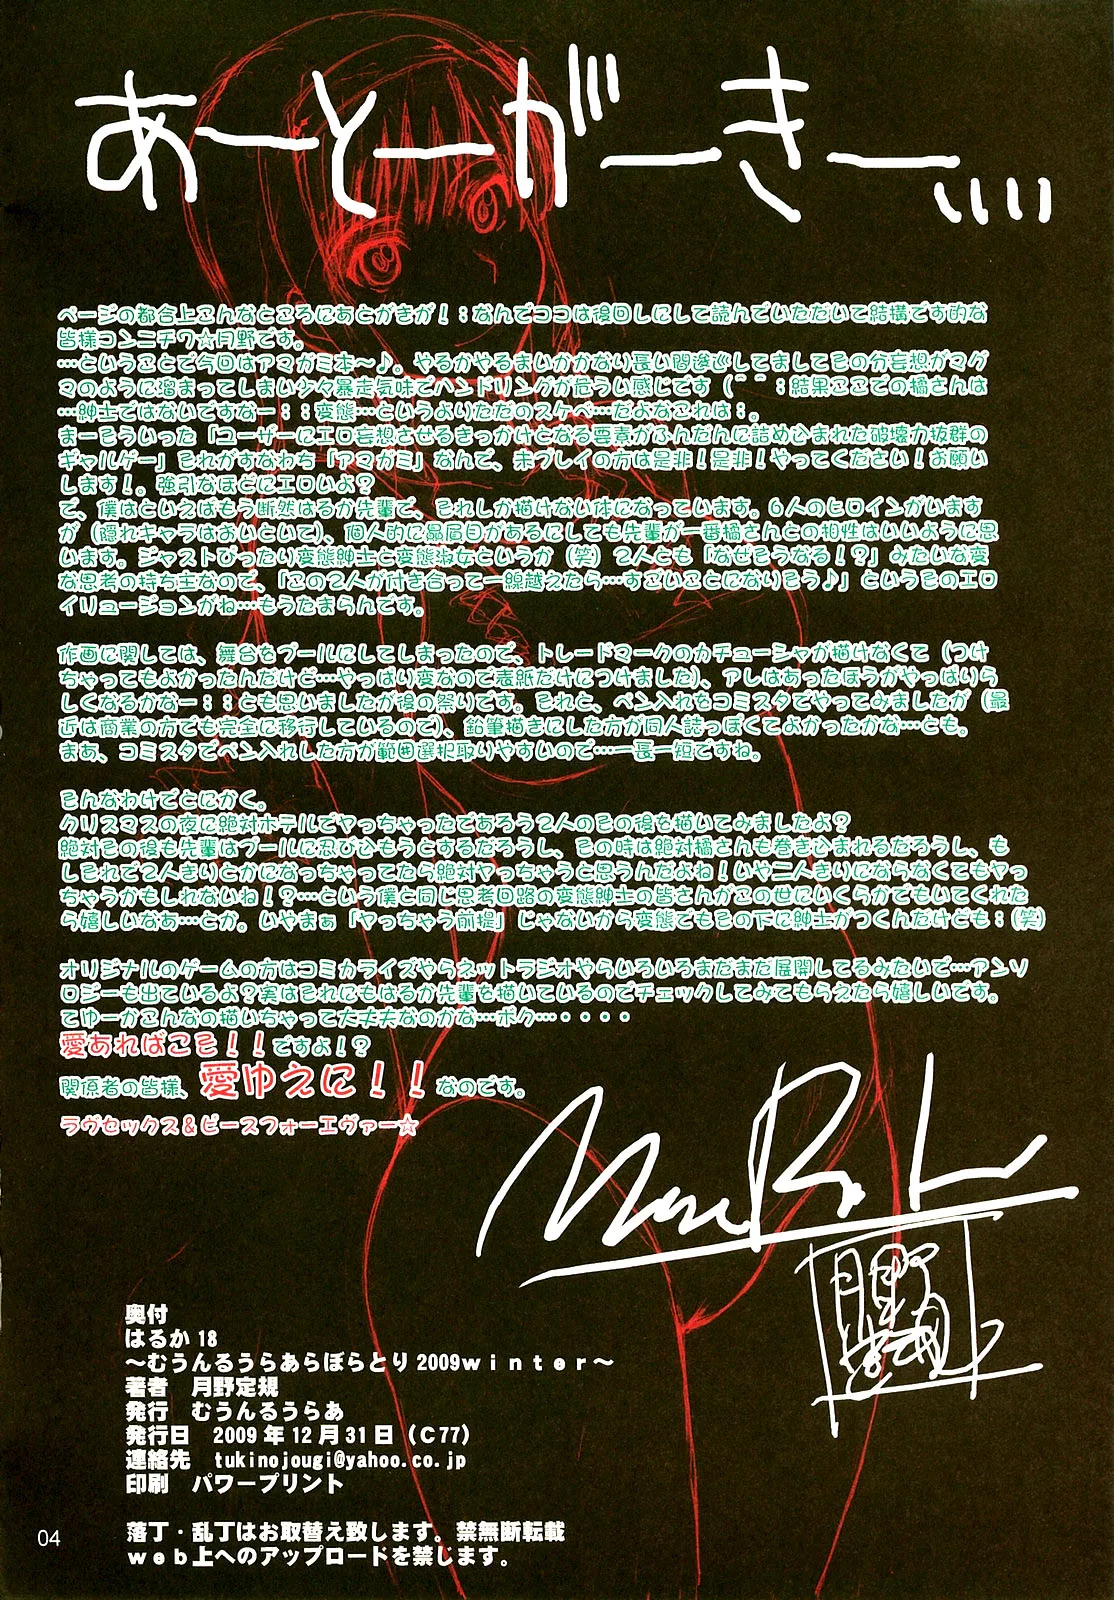 あーとーがーきー､､､､
ページの都合上こんなところにあとがきが！；なんでココは後回しにして読んでいただいて結構です的な
皆様コンニチワ☆月野です。
…ということで今回はアマガミ本～♪。やるかやるまいかかなり長い間逡巡してましてその分妄想がマグ
マのように溜まってしまい少々暴走気味でハンドリングが危うい感じです（＾＾；結果ここでの橘さんは
…紳士ではないですなー；；変態…というよりただのスケベ…だよなこれは；。
まーそういった「ユーザーにエロ妄想させるきっかけとなる要素がふんだんに詰め込まれた破壊力抜群の
ギャルゲー」それがすなわち「アマガミ」なんで、未プレイの方は是非！是非！やってください！お願い
します！。強引なほどにエロいよ？
で、僕はといえばもう断然はるか先輩で、それしか描けない体になっています。６人のヒロインがいます
が（隠れキャラはおいといて）、個人的に贔屓目があるにしても先輩が一番橘さんとの相性はいいように思
います。ジャストぴったり変態紳士と変態淑女というか（笑）２人とも「なぜそうなる！？」みたいな変
な思考の持ち主なので、「この２人が付き合って一線越えたら…すごいことになりそう♪」というそのエロ
イリュージョンがね…もうたまらんです。
作画に関しては、舞台をプールにしてしまったので、トレードマークのカチューシャが描けなくて（つけ
ちゃってもよかったんだけど…やっぱり変なので表紙だけにつけました）、アレはあったほうがやっぱりら
しくなるかなー；；とも思いましたが後の祭りです。それと、ペン入れをコミスタでやってみましたが（最
近は商業の方でも完全に移行しているので）、鉛筆描きにした方が同人誌っぽくてよかったかな…とも。
まあ、コミスタでペン入れした方が範囲選択取りやすいので…一長一短ですね。
そんなわけでとにかく。
クリスマスの夜に絶対ホテルでヤっちゃったであろう２人のその後を描いてみましたよ？
絶対その後も先輩はプールに忍びひもうとするだろうし、その時は絶対橘さんも巻きひまれるだろうし、も
しそれで２人きりとかになっちゃってたら絶対ヤっちゃうと思うんだよね！いや二人きりにならなくてもヤっ
ちゃうかもしれないね！？…という僕と同じ思考回路の変態紳士の皆さんがこの世にいくらかでもいてくれた
ら嬉しいなあ…とか。いやまぁ「ヤっちゃう前提」じゃないから変態でもその下に紳士がつくんだけども；（笑）
オリジナルのゲームの方はコミカライズやらネットラジオやらいろいろまだまだ展開してるみたいで…アンソ
ロジーも出ているよ？実はそれにもはるか先輩を描いているのでチェックしてみてもらえたら嬉しいです。
てゆーかこんなの描いちゃって大丈夫なのかな…ボク…・・・・
愛あればこそ！！ですよ！？
関係者の皆様、愛ゆえに！！なのです。
ラヴセックス＆ピースフォーエヴァー☆
奥付
はるか18
～むうんるうらあらぼらとり2009winter～
著者　月野定規
発行　むうんるうらあ
発行日　2009年12月31日（C77）
連絡先　tukinojougi@yahoo.co.jp
印刷　パワープリント
04
落丁・乱丁はお取替え致します。禁無断転載
web上へのアップロードを禁じます。